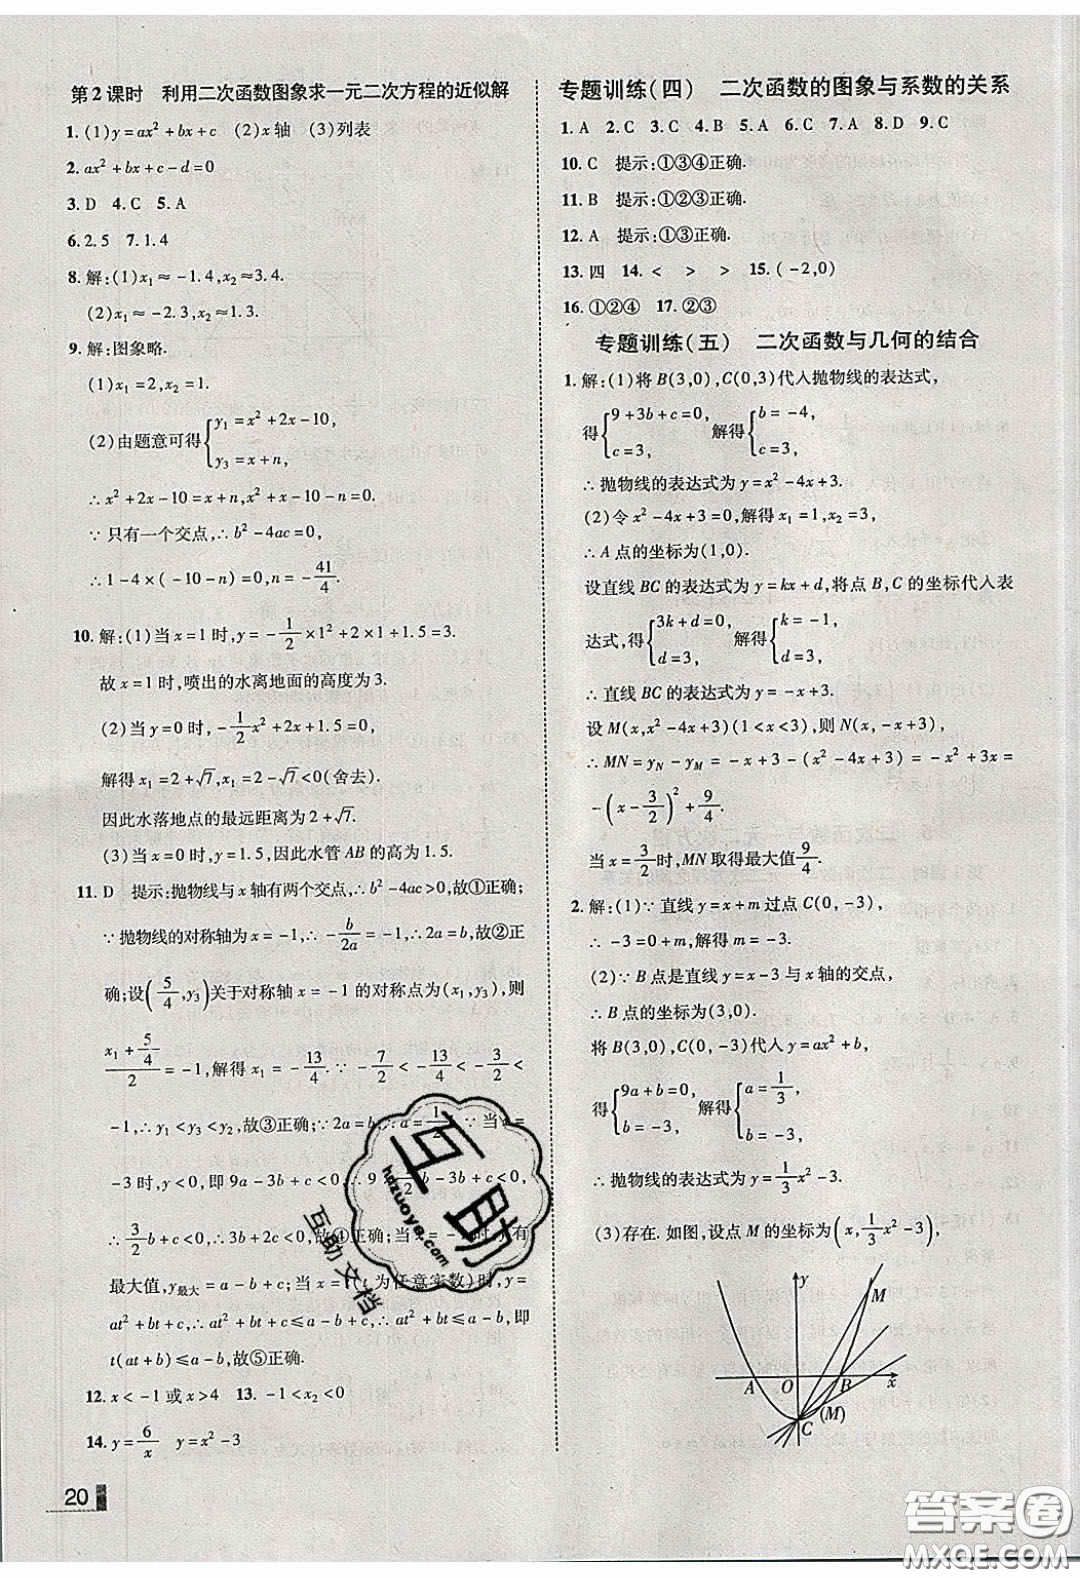 第2课时　利用二次函数图象求一元二次方程的近似解
1.(1)y=ax²+bx+c　(2)x轴　(3)列表
2.ax²+bx+c-d=0
3.D　4.C　5.A
6.2.5　7.1.4
8.解:(1)x₁≈-1.4,x₂≈3.4.
(2)x₁≈-2.3,x₂≈1.3.
9.解:图象略.
(1)x₁=2,x₂=1.
(2)由题意可得{y₁=x²+2x-10,
y₃=x+n,
∴x²+2x-10=x+n,x²+x-10-n=0.
∵只有一个交点,∴b²-4ac=0,
∴1-4×(-10-n)=0,n=-41/4.
10.解:(1)当x=1时,y=-1/2×1²+2×1+1.5=3.
故x=1时,喷出的水离地面的高度为3.
(2)当y=0时,-1/2x²+2x+1.5=0,
解得x₁=2+√7,x₂=2-√7<0(舍去).
因此水落地点的最远距离为2+√7.
(3)当x=0时,y=1.5,因此水管AB的高为1.5.
11.D　提示:抛物线与x轴有两个交点,∴b²-4ac>0,故①正确;
∵抛物线的对称轴为x=-1,∴-b/2a=-1,∴2a=b,故②正
确;设(5/4,y₃)关于对称轴x=-1的对称点为(x₁,y₃),则
(x₁+5/4)/2=-1,解得x₁=-13/4.∵-7/2<-13/4<-3/2<
-1,∴y₁<y₃<y₂,故③正确;∵2a=b,∴a=1/2 ∵当x=
-3时,y<0,即9a-3b+c<0,∴9 /2b-3b+c<0,
∴3/2b+c<0,∴3b+2c<0,故④正确;当x=-1时,y有
最大值,y最大=a-b+c;当x= (t为任意实数)时,y=
at²+bt+c,∴at²+bt+c≤a-b+c,∴at²+bt≤a-b,即
t(at+b)≤a-b,故⑤正确.
12.x<-1或x>4　13.-1<x₂<0
14.y=6/x　y=x²-3
20
专题训练(四)　二次函数的图象与系数的关系
1.A　2.C　3.C　4.B　5.A　6.C　7.A　8.D　9.C
10.C　提示:①③④正确.
11.B　提示:①②③正确.
12.A　提示:①③正确.
13.四　14.<　>　>　15.(-2,0)
16.①②④　17.②③
专题训练(五)　二次函数与几何的结合
1.解:(1)将B(3,0),C(0,3)代入抛物线的表达式,
得{9+3b+c=0,　解得{b=-4,
c=3,　c=3,
∴抛物线的表达式为y=x²-4x+3.
(2)令x²-4x+3=0,解得x₁=1,x₂=3,
∴A点的坐标为(1,0).
设直线BC的表达式为y=kx+d,将点B,C的坐标代入表
达式,得{3k+d=0,　解得{k=-1,
d=3,　d=3,
∴直线BC的表达式为y=-x+3.
设M(x,x²-4x+3)(1<x<3),则N(x,-x+3),
∴MN=y_N-y_M=-x+3-(x²-4x+3)=-x²+3x=
-(x-3/2)²+9/4.
当x=3/2时,MN取得最大值9/4.
2.解:(1)∵直线y=x+m过点C(0,-3),
∴-3=0+m,解得m=-3.
(2)∵B点是直线y=x-3与x轴的交点,
∴B点的坐标为(3,0).
将B(3,0),C(0,-3)代入y=ax²+b,
得{9a+b=0,　解得{a=1/3,
b=-3,　b=-3,
∴抛物线的表达式为y=1/3x²-3.
(3)存在.如图,设点M的坐标为(x,1/3x²-3),
y
M
A　O　B　x
(M)
C
互助
hdzuoye.com
互助文档
答案圈
MXQE.COM